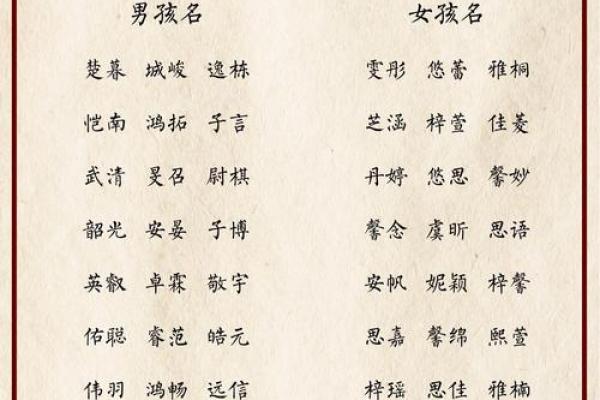 男孩名 女孩名
楚暮 城峻 逸栋 雯彤 悠蕾 雅桐
恺南 鸿拓 子言 芝涵 梓萱 佳菱
武清 旻召 尉棋 丹婷 悠思 馨妙
韶光 安晏 子博 馨念 虞昕 思语
英叡 卓霖 敬宇 安帆 妮颖 梓馨
佑聪 睿范 皓元 思嘉 馨绵 熙萱
伟羽 鸿畅 远信 梓瑶 思佳 雅楠